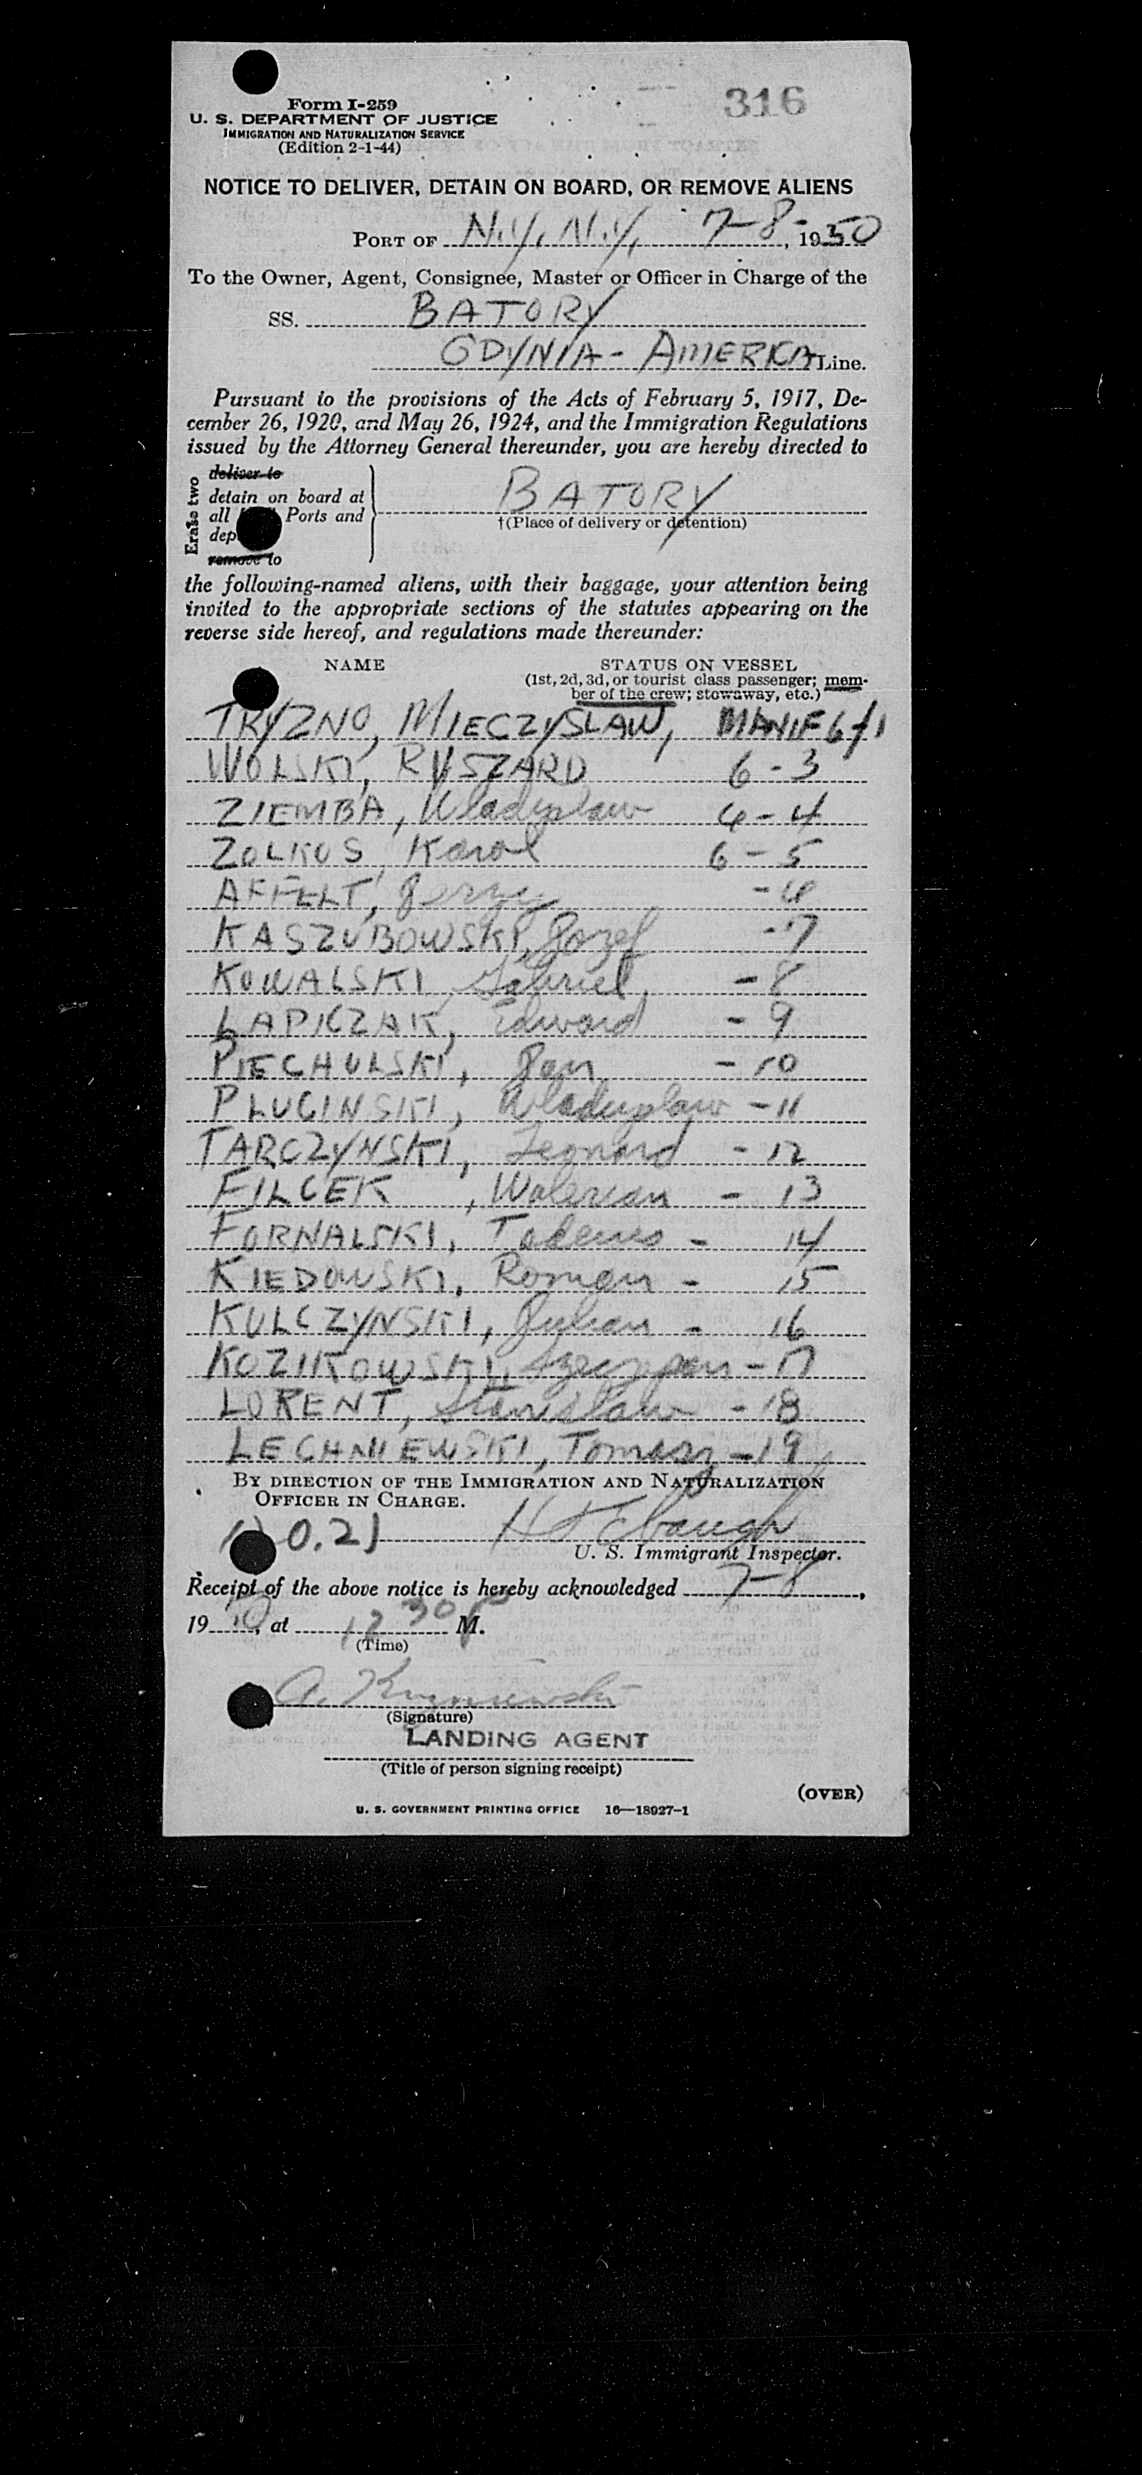 316
Form I-259
U. S. DEPARTMENT OF JUSTICE
IMMIGRATION AND NATURALIZATION SERVICE
(Edition 2-1-44)
NOTICE TO DELIVER, DETAIN ON BOARD, OR REMOVE ALIENS
PORT OF N.Y., N.Y., 7-8-, 1950
To the Owner, Agent, Consignee, Master or Officer in Charge of the
SS. BATORY
GDYNIA-AMERICA Line.
Pursuant to the provisions of the Acts of February 5, 1917, De-
cember 26, 1920, and May 26, 1924, and the Immigration Regulations
issued by the Attorney General thereunder, you are hereby directed to
Erase two
deliver to
detain on board at
all Ports and
dep
remove to
BATORY
†(Place of delivery or detention)
the following-named aliens, with their baggage, your attention being
invited to the appropriate sections of the statutes appearing on the
reverse side hereof, and regulations made thereunder:
NAME STATUS ON VESSEL
(1st, 2d, 3d, or tourist class passenger; mem-
ber of the crew; stowaway, etc.)
TRYZNO, MIECZYSLAW, MANIF 6/1
WOLSKI, RYSZARD 6-3
ZIEMBA, Wladyslaw 6-4
ZOLKOS, Karol 6-5
AFFELT, Jerzy -6
KASZUBOWSKI, Jozef -7
KOWALSKI, Gabriel, -8
LAPICZAK, Edward -9
PIECHULSKI, Jan -10
PLUCINSKI, Wladyslaw -11
TARCZYNSKI, Leonard -12
FILCEK, Walerian - 13
FORNALSKI, Tadeus - 14
KIEDOWSKI, Roman - 15
KULCZYNSKI, Julian - 16
KOZIKOWSKI, Szczepan -17
LORENT, Stanislaw -18
LECHNIEWSKI, Tomasz -19
BY DIRECTION OF THE IMMIGRATION AND NATURALIZATION
OFFICER IN CHARGE.
0.21
U. S. Immigrant Inspector.
Receipt of the above notice is hereby acknowledged 7-8,
1950, at 12 30 P M.
(Time)
(Signature)
LANDING AGENT
(Title of person signing receipt)
(OVER)
U. S. GOVERNMENT PRINTING OFFICE 16—18927-1